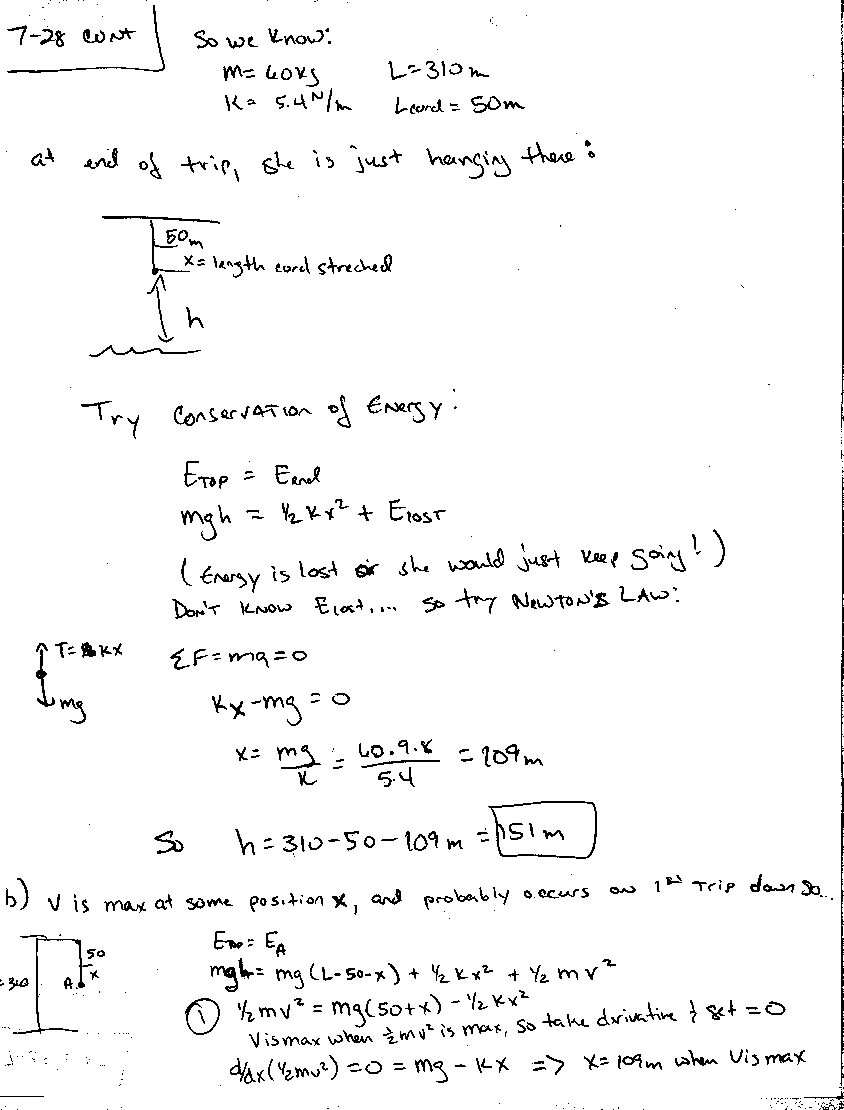 7-28 CONT
So we know:
m = 60kg L = 310 m
K = 5.4 N/m Lcord = 50m
at end of trip, she is just hanging there:
50m
x = length cord streched
h
Try Conservation of Energy:
ETOP = Eend
mgh = ½ Kx² + ELOST
(Energy is lost or she would just keep going!)
DON'T KNOW Elost.... so try NEWTON'S LAW:
T = Kx
mg
ΣF = ma = 0
Kx - mg = 0
x = mg/K = 60·9.8/5.4 = 109m
So h = 310 - 50 - 109 m = 151 m
b) V is max at some position x, and probably occurs on 1st Trip down so...
50
x
A
= 310
ETOP = EA
mgL = mg(L-50-x) + ½ Kx² + ½ mv²
① ½ mv² = mg(50+x) - ½ Kx²
V is max when ½mv² is max, so take drivative & set = 0
d/dx(½mv²) = 0 = mg - Kx => x = 109m when V is max